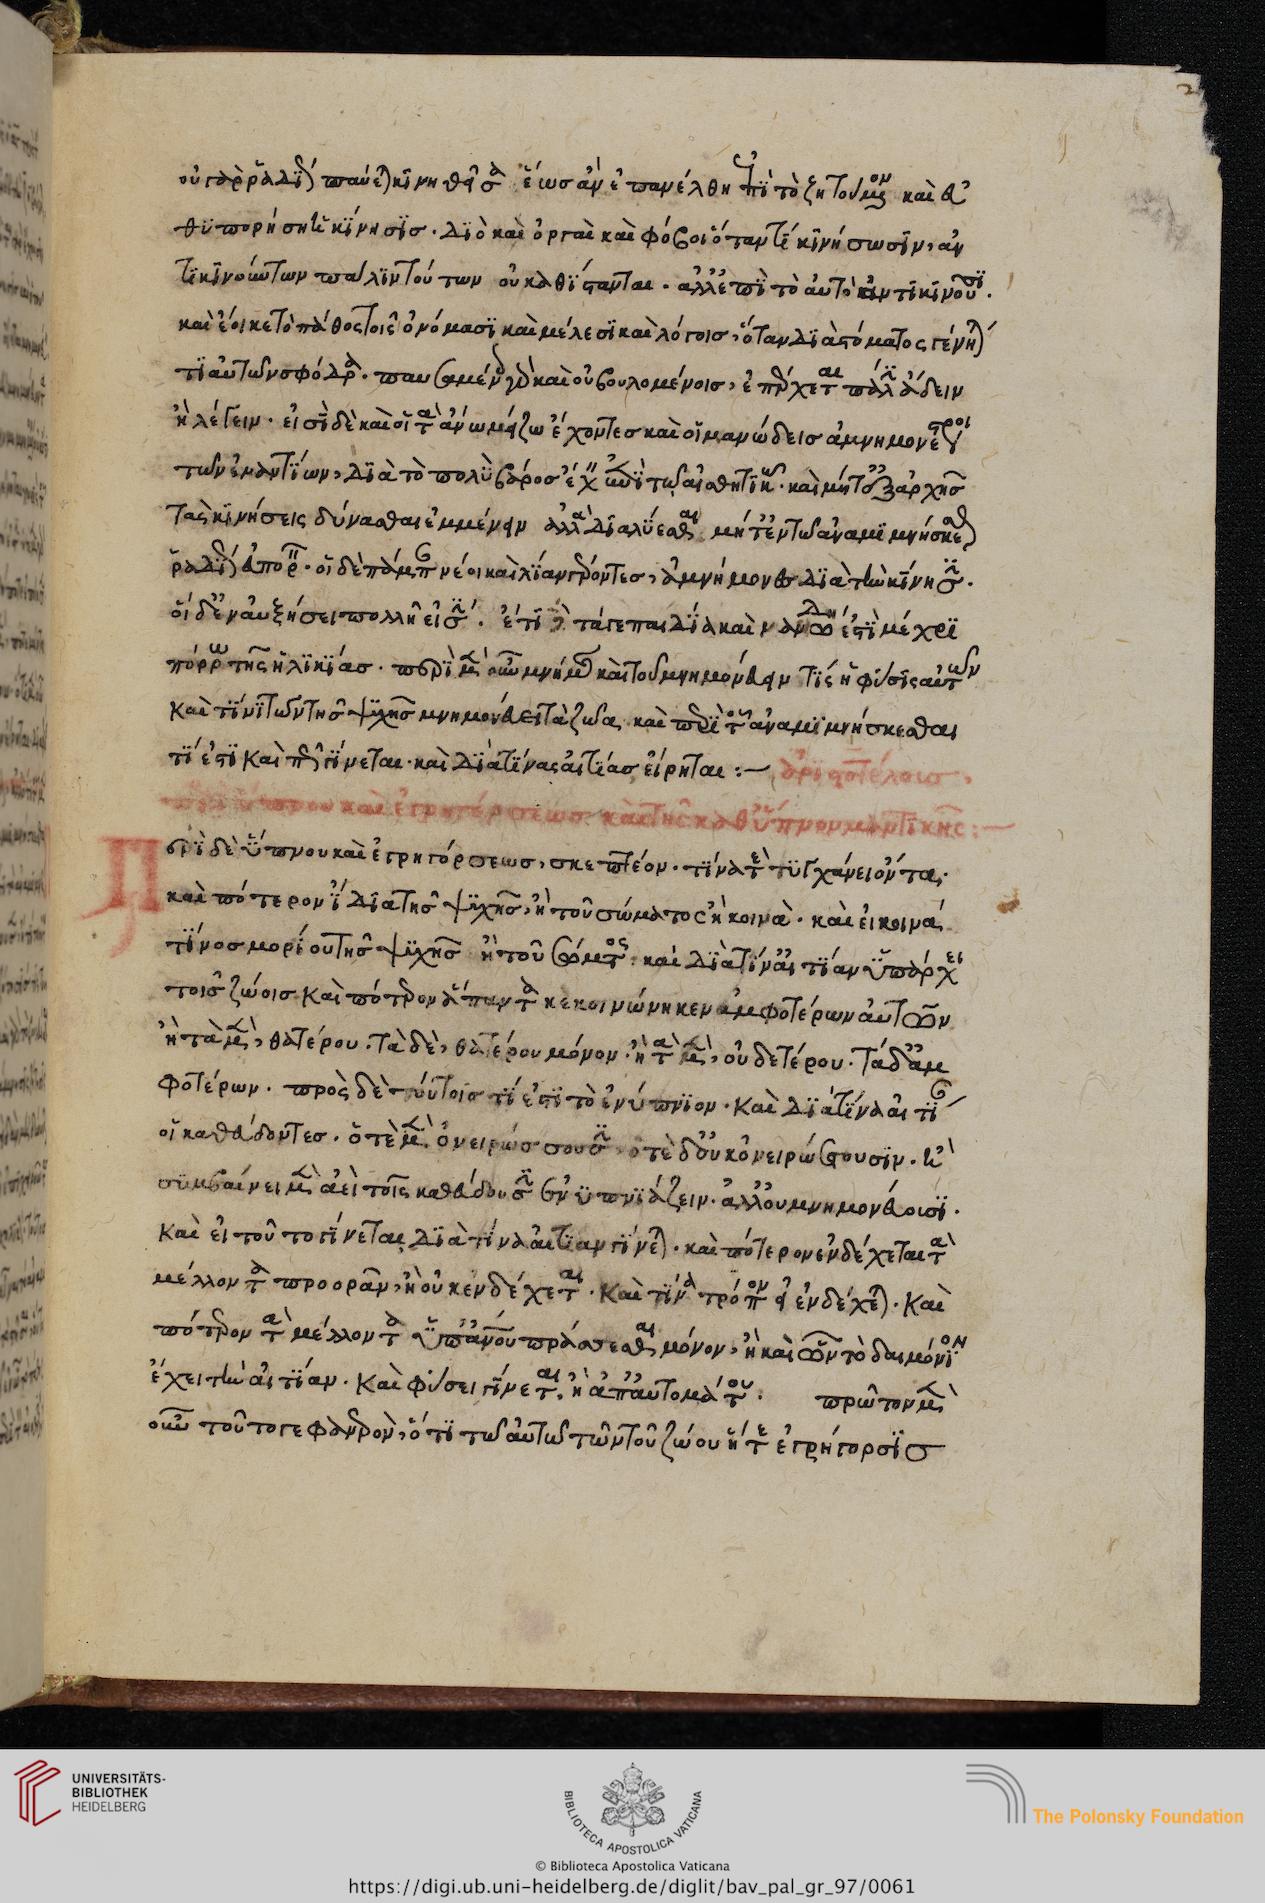 οὐ γὰρ ῥαδίως παύεται κινηθεῖσα ἕως ἂν ἐπανέλθη ἐπὶ τὸ ζητούμενον καὶ εὐ
θυπορήση ἡ κίνησις. διὸ καὶ ὀργαὶ καὶ φόβοι ὅταν τι κινήσωσιν, ἀν
τικινούντων πάλιν τούτων οὐ καθίστανται. ἀλλ' ἐπὶ τὸ αὐτὸ ἀντικινοῦσι.
καὶ ἔοικε τὸ πάθος τοῖς ὀνόμασι καὶ μέλεσι καὶ λόγοις, ὅταν διὰ στόματος γένηται
τι αὐτῶν σφόδρα. παυσαμένοις γὰρ καὶ οὐ βουλομένοις, ἐπέρχεται πάλιν ἄδειν
ἢ λέγειν. εἰσὶ δὲ καὶ οἱ τὰ ἄνω μείζω ἔχοντες καὶ οἱ νανώδεις ἀμνημονέστεροι
τῶν ἐναντίων, διὰ τὸ πολὺ βάρος ἔχειν ἐπὶ τῷ αἰσθητικῷ. καὶ μήτ' ἐξ ἀρχῆς
τὰς κινήσεις δύνασθαι ἐμμένειν ἀλλὰ διαλύεσθαι μήτ' ἐν τῷ ἀναμιμνήσκεσθαι
ῥαδίως εὐπορεῖν. οἱ δὲ πάμπαν νέοι καὶ λίαν γέροντες, ἀμνήμονες διὰ τὴν κίνησιν.
οἱ δ' ἐν αὐξήσει πολλῆ εἰσίν. ἔτι τά γε παιδία καὶ νανώδη ἐστὶ μέχρι
πόρρω τῆς ἡλικίας. περὶ μὲν οὖν μνήμης καὶ τοῦ μνημονεύειν τίς ἡ φύσις αὐτῶν
καὶ τίνι τῶν τῆς ψυχῆς μνημονεύει τὰ ζῶα καὶ περὶ τοῦ ἀναμιμνήσκεσθαι
τί ἐστι καὶ πῶς γίνεται. καὶ διὰ τίνας αἰτίας εἴρηται :— ἀριστοτέλους,
περὶ ὕπνου καὶ ἐγρηγόρσεως καὶ τῆς καθ' ὕπνον μαντικῆς :—
Περὶ δὲ ὕπνου καὶ ἐγρηγόρσεως, σκεπτέον. τίνα τε τυγχάνει ὄντα.
καὶ πότερον ἴδια τῆς ψυχῆς, ἢ τοῦ σώματος ἢ κοινὰ. καὶ εἰ κοινά,
τίνος μορίου τῆς ψυχῆς ἢ τοῦ σώματος. καὶ διὰ τίν' αἰτίαν ὑπάρχει
τοῖς ζώοις καὶ πότερον ἅπαντα κεκοινώνηκεν ἀμφοτέρων αὐτῶν
ἢ τὰ μὲν, θατέρου. τὰ δὲ, θατέρου μόνον. ἢ τὰ μὲν, οὐδετέρου. τὰ δ' ἀμ
φοτέρων. πρὸς δὲ τούτοις τί ἐστι τὸ ἐνύπνιον. καὶ διὰ τίνα αἰτίαν
οἱ καθεύδοντες. ὁτὲ μὲν ὀνειρώσσουσιν ὁτὲ δ' οὐκ ὀνειρώσσουσιν. ἢ
συμβαίνει μὲν ἀεὶ τοῖς καθεύδουσιν ἐνυπνιάζειν. ἀλλ' οὐ μνημονεύουσι.
καὶ εἰ τοῦτο γίνεται, διὰ τίνα αἰτίαν γίνεται. καὶ πότερον ἐνδέχεται τὰ
μέλλοντα προορᾶν, ἢ οὐκ ἐνδέχεται. καὶ τίνα τρόπον εἰ ἐνδέχεται. καὶ
πότερον τὰ μέλλοντα ὑπ' ἀνθρώπου πράσσεσθαι μόνον, ἢ καὶ ὧν τὸ δαιμόνιον
ἔχει τὴν αἰτίαν. καὶ φύσει γίνεται, ἢ ἀπ' αὐτομάτου. πρῶτον μὲν
οὖν τοῦτό γε φανερὸν, ὅτι τῷ αὐτῷ τῶν τοῦ ζώου ἥ τε ἐγρήγορσις
UNIVERSITÄTS-
BIBLIOTHEK
HEIDELBERG
BIBLIOTECA APOSTOLICA VATICANA
The Polonsky Foundation
© Biblioteca Apostolica Vaticana
https://digi.ub.uni-heidelberg.de/diglit/bav_pal_gr_97/0061